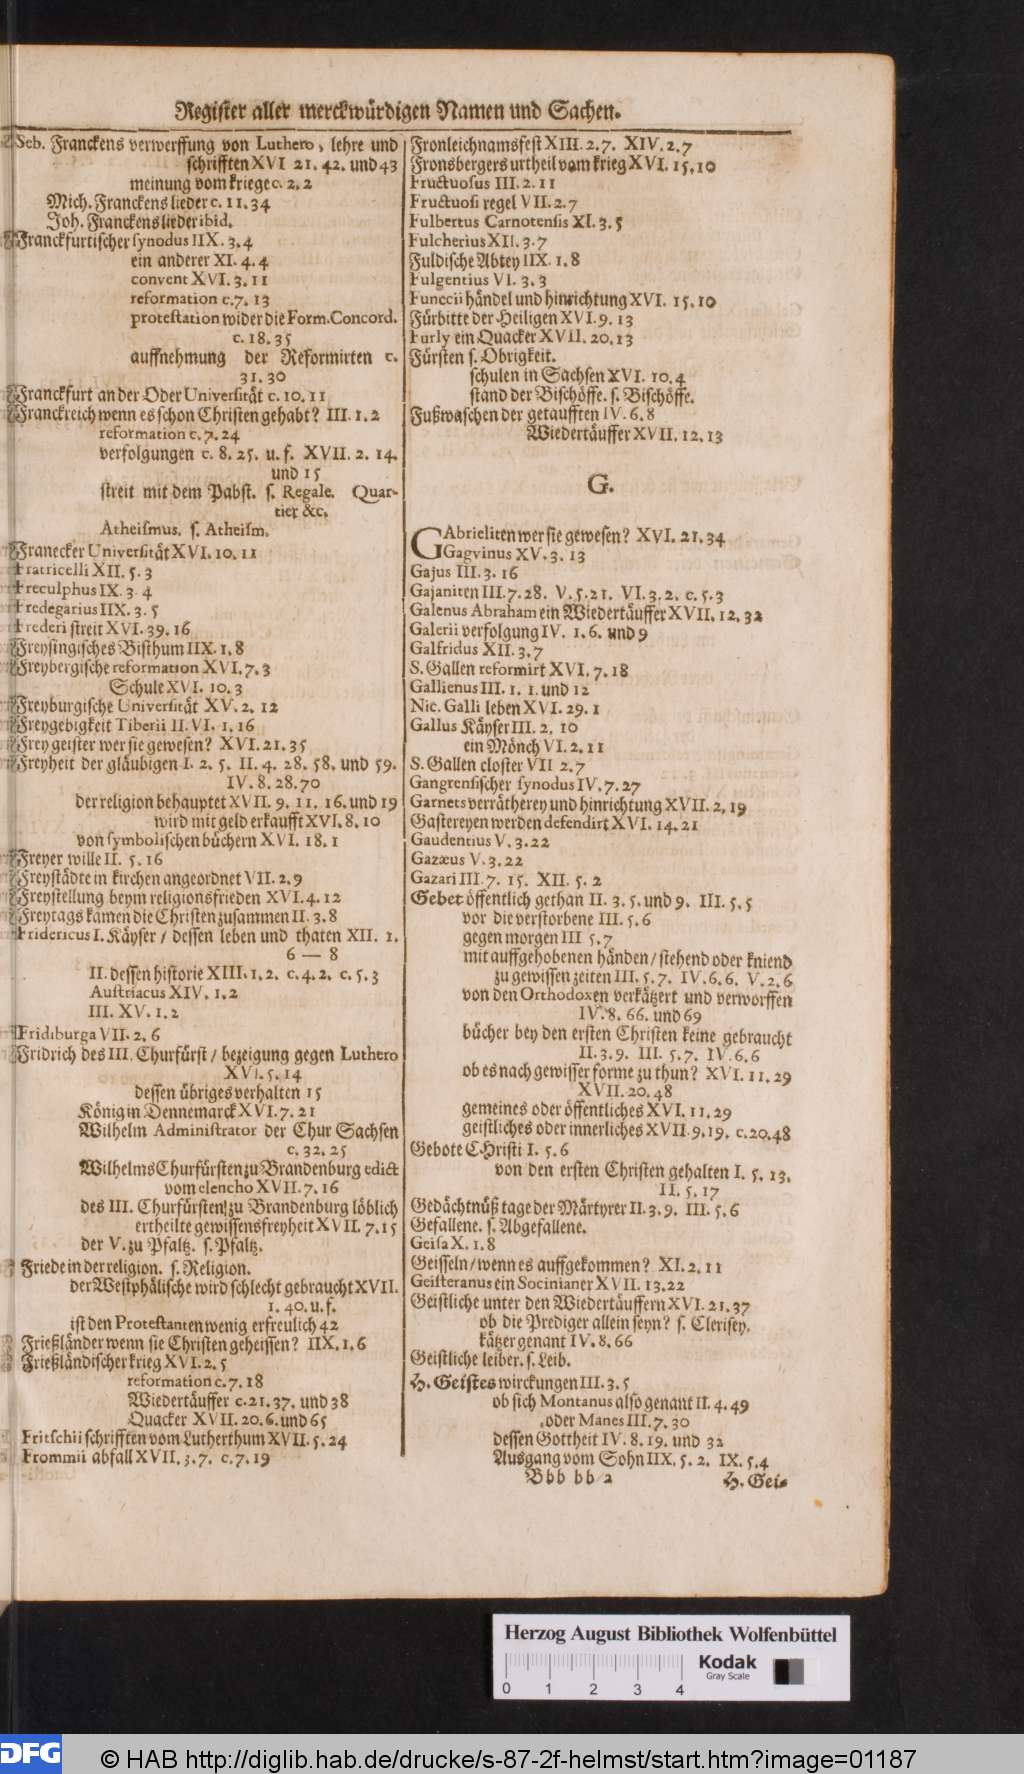 Register aller merckwürdigen Namen und Sachen.
Seb. Franckens verwerffung von Luthero, lehre und
schrifften XVI 21. 42. und 43
meinung vom kriege c. 2. 2
Mich. Franckens lieder c. 11. 34
Joh. Franckens lieder ibid.
Franckfurtischer synodus IIX. 3. 4
ein anderer XI. 4. 4
convent XVI. 3. 11
reformation c. 7. 13
protestation wider die Form. Concord.
c. 18. 35
auffnehmung der Reformirten c.
31. 30
Franckfurt an der Oder Universität c. 10. 11
Franckreich wenn es schon Christen gehabt? III. 1. 2
reformation c. 7. 24
verfolgungen c. 8. 25. u. f. XVII. 2. 14.
und 15
streit mit dem Pabst. s. Regale. Quar-
tier &c.
Atheismus. s. Atheism.
Franecker Universität XVI. 10. 11
Fratricelli XII. 5. 3
Freculphus IX. 3. 4
Fredegarius IIX. 3. 5
Frederi streit XVI. 39. 16
Freysingisches Bisthum IIX. 1. 8
Freybergische reformation XVI. 7. 3
Schule XVI. 10. 3
Freyburgische Universität XV. 2. 12
Freygebigkeit Tiberii II. VI. 1. 16
Frey geister wer sie gewesen? XVI. 21. 35
Freyheit der gläubigen I. 2. 5. II. 4. 28. 58. und 59.
IV. 8. 28. 70
der religion behauptet XVII. 9. 11. 16. und 19
wird mit geld erkaufft XVI. 8. 10
von symbolischen büchern XVI. 18. 1
Freyer wille II. 5. 16
Freystädte in kirchen angeordnet VII. 2. 9
Freystellung beym religionsfrieden XVI. 4. 12
Freytags kamen die Christen zusammen II. 3. 8
Fridericus I. Käyser / dessen leben und thaten XII. 1.
6 — 8
II. dessen historie XIII. 1. 2. c. 4. 2. c. 5. 3
Austriacus XIV. 1. 2
III. XV. 1. 2
Fridiburga VII. 2. 6
Fridrich des III. Churfürst / bezeigung gegen Luthero
XVI. 5. 14
dessen übriges verhalten 15
König in Dennemarck XVI. 7. 21
Wilhelm Administrator der Chur Sachsen
c. 32. 25
Wilhelms Churfürsten zu Brandenburg edict
vom elencho XVII. 7. 16
des III. Churfürsten zu Brandenburg löblich
ertheilte gewissensfreyheit XVII. 7. 15
der V. zu Pfaltz. s. Pfaltz.
Friede in der religion. s. Religion.
der Westphälische wird schlecht gebraucht XVII.
1. 40. u. f.
ist den Protestanten wenig erfreulich 42
Frießländer wenn sie Christen geheissen? IIX. 1. 6
Frießländischer krieg XVI. 2. 5
reformation c. 7. 18
Wiedertäuffer c. 21. 37. und 38
Quacker XVII. 20. 6. und 65
Fritschii schrifften vom Lutherthum XVII. 5. 24
Frommii abfall XVII. 3. 7. c. 7. 19
Fronleichnamsfest XIII. 2. 7. XIV. 2. 7
Fronsbergers urtheil vom krieg XVI. 15. 10
Fructuosus III. 2. 11
Fructuosi regel VII. 2. 7
Fulbertus Carnotensis XI. 3. 5
Fulcherius XII. 3. 7
Fuldische Abtey IIX. 1. 8
Fulgentius VI. 3. 3
Funccii händel und hinrichtung XVI. 15. 10
Fürbitte der Heiligen XVI. 9. 13
Furly ein Quacker XVII. 20. 13
Fürsten s. Obrigkeit.
schulen in Sachsen XVI. 10. 4
stand der Bischöffe. s. Bischöffe.
Fußwaschen der getaufften IV. 6. 8
Wiedertäuffer XVII. 12. 13
G.
GAbrieliten wer sie gewesen? XVI. 21. 34
Gagvinus XV. 3. 13
Gajus III. 3. 16
Gajaniten III. 7. 28. V. 5. 21. VI. 3. 2. c. 5. 3
Galenus Abraham ein Wiedertäuffer XVII. 12. 32
Galerii verfolgung IV. 1. 6. und 9
Galfridus XII. 3. 7
S. Gallen reformirt XVI. 7. 18
Gallienus III. 1. 1. und 12
Nic. Galli leben XVI. 29. 1
Gallus Käyser III. 2. 10
ein Mönch VI. 2. 11
S. Gallen closter VII 2. 7
Gangrensischer synodus IV. 7. 27
Garnets verrätherey und hinrichtung XVII. 2. 19
Gastereyen werden defendirt XVI. 14. 21
Gaudentius V. 3. 22
Gazæus V. 3. 22
Gazari III. 7. 15. XII. 5. 2
Gebet öffentlich gethan II. 3. 5. und 9. III. 5. 5
vor die verstorbene III. 5. 6
gegen morgen III 5. 7
mit auffgehobenen händen / stehend oder kniend
zu gewissen zeiten III. 5. 7. IV. 6. 6. V. 2. 6
von den Orthodoxen verkätzert und verworffen
IV. 8. 66. und 69
bücher bey den ersten Christen keine gebraucht
II. 3. 9. III. 5. 7. IV. 6. 6
ob es nach gewisser forme zu thun? XVI. 11. 29
XVII. 20. 48
gemeines oder öffentliches XVI. 11. 29
geistliches oder innerliches XVII. 9. 19. c. 20. 48
Gebote Christi I. 5. 6
von den ersten Christen gehalten I. 5. 13.
II. 5. 17
Gedächtnüß tage der Märtyrer II. 3. 9. III. 5. 6
Gefallene. s. Abgefallene.
Geisa X. 1. 8
Geisseln / wenn es auffgekommen? XI. 2. 11
Geisteranus ein Socinianer XVII. 13. 22
Geistliche unter den Wiedertäuffern XVI. 21. 37
ob die Prediger allein seyn? s. Clerisey.
kätzer genant IV. 8. 66
Geistliche leiber. s. Leib.
H. Geistes wirckungen III. 3. 5
ob sich Montanus also genant II. 4. 49
oder Manes III. 7. 30
dessen Gottheit IV. 8. 19. und 32
Ausgang vom Sohn IIX. 5. 2. IX. 5. 4
Bbb bb 2
H. Gei-
Herzog August Bibliothek Wolfenbüttel
Kodak
Gray Scale
0 1 2 3 4
DFG
© HAB http://diglib.hab.de/drucke/s-87-2f-helmst/start.htm?image=01187